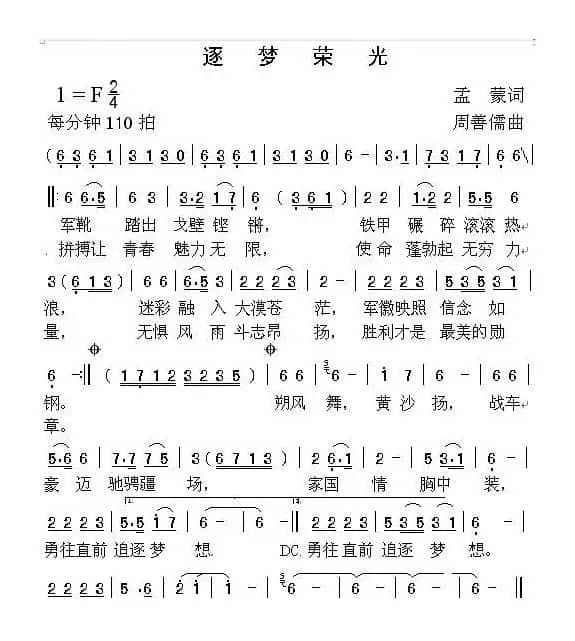 逐 梦 荣 光
1 = F 2/4
孟 蒙词
每分钟 110 拍
周善儒曲
(6 3 6 1 | 3 1 3 0 | 6 3 6 1 | 3 1 3 0 | 6 - | 3·1 | 7 3 1 7 | 6 6 \ |
‖: 6 6·5 | 6 3 | 3·2 1 7 | 6 (3 6 1) | 2 2 | 1·2 2 | 5·5 6
军靴 踏出 戈壁 铿 锵， 铁甲 碾 碎 滚滚 热
拼搏让 青春 魅力 无 限， 使命 蓬勃起 无穷 力
3 (6 1 3) | 6 6 | 6·5 3 | 2 2 2 3 | 2 - | 2 2 2 3 | 5 3 5 3 1
浪， 迷彩 融 入 大漠苍 茫， 军徽映照 信念 如
量， 无惧 风 雨 斗志昂 扬， 胜利才是 最美的 勋
6 - :‖ (1 7 1 2 3 2 3 5) | 6 6 | 6 - | 1 7 | 6 - | 6 6
钢。 朔风 舞， 黄 沙 扬， 战车
章。
5·6 6 | 7·7 7 5 | 3 (6 7 1 3) | 2 6·1 | 2 - | 3 5·2 | 3 -
豪 迈 驰骋疆 场， 家国 情 胸中 装，
1. 2.
2 2 2 3 | 5·5 1 7 | 6 - | 6 - :‖ 2 2 2 3 | 5 3 5 3 1 | 6 -
勇往直前 追逐 梦 想. DC. 勇往直前 追逐 梦 想。
2 2 2 3 | 5·5 | 2 1 | 6 - | 6 - | 6 - | 6 - | 6 0 ‖